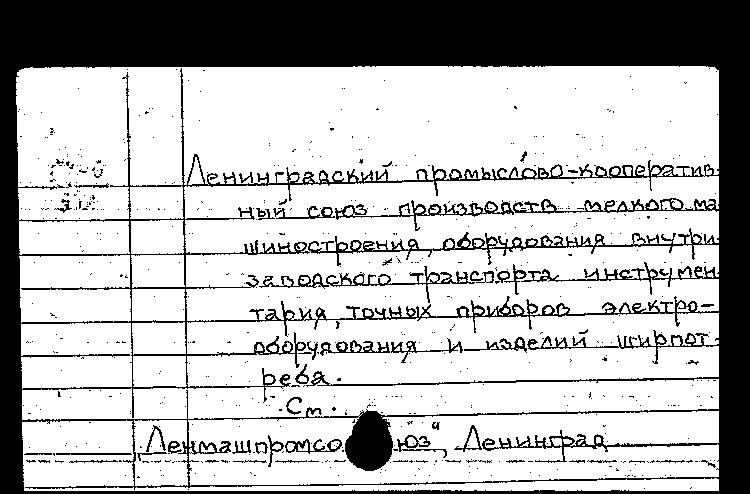 Ленинградский промыслово-кооператив-
ный союз производств мелкого ма
шиностроения, оборудования внутри-
заводского транспорта инструмен-
тария, точных приборов электро-
оборудования и изделий ширпот-
реба.
См.
„Ленмашпромсоюз", Ленинград